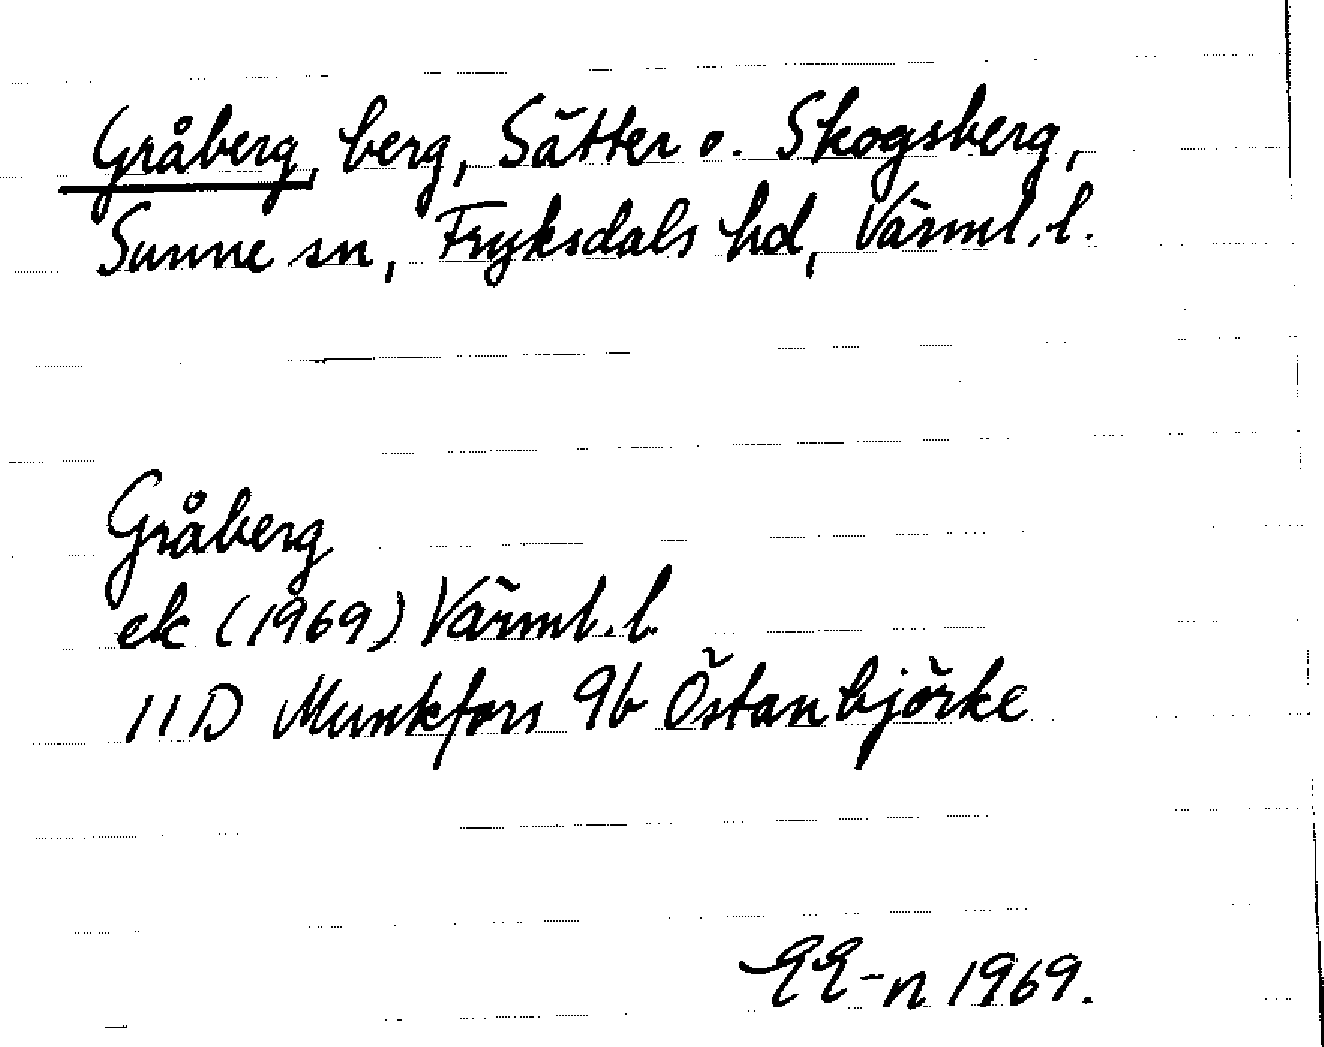 Gråberg, berg, Sätter o. Skogsberg,
Sunne sn, Fryksdals hd, Värml. l.
Gråberg
ek (1969) Värml. l.
11D Munkfors 9b Östanbjörke
EE-n 1969.